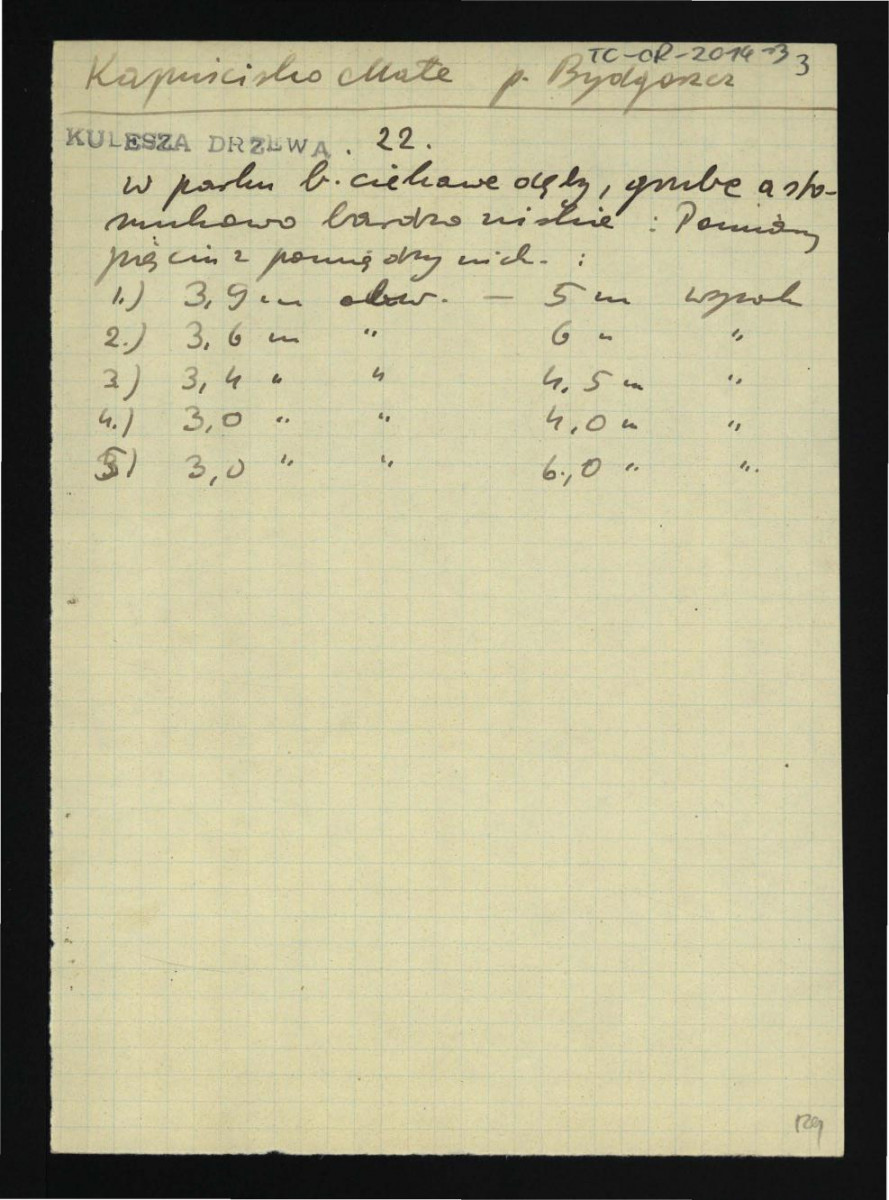 TC-OR-2014-3 3
Kapuścisko Małe p. Bydgoszcz
KULESZA DRZEWA. 22.
w parku b. ciekawe dęby, grube a sto-
sunkowo bardzo niskie : Pomiary
pięciu z pomiędzy nich. :
1.) 3,9 m obw. — 5 m wysok
2.) 3,6 m " 6 " "
3) 3,4 " " 4,5 m "
4.) 3,0 " " 4,0 m "
5) 3,0 " " 6,0 " "
129